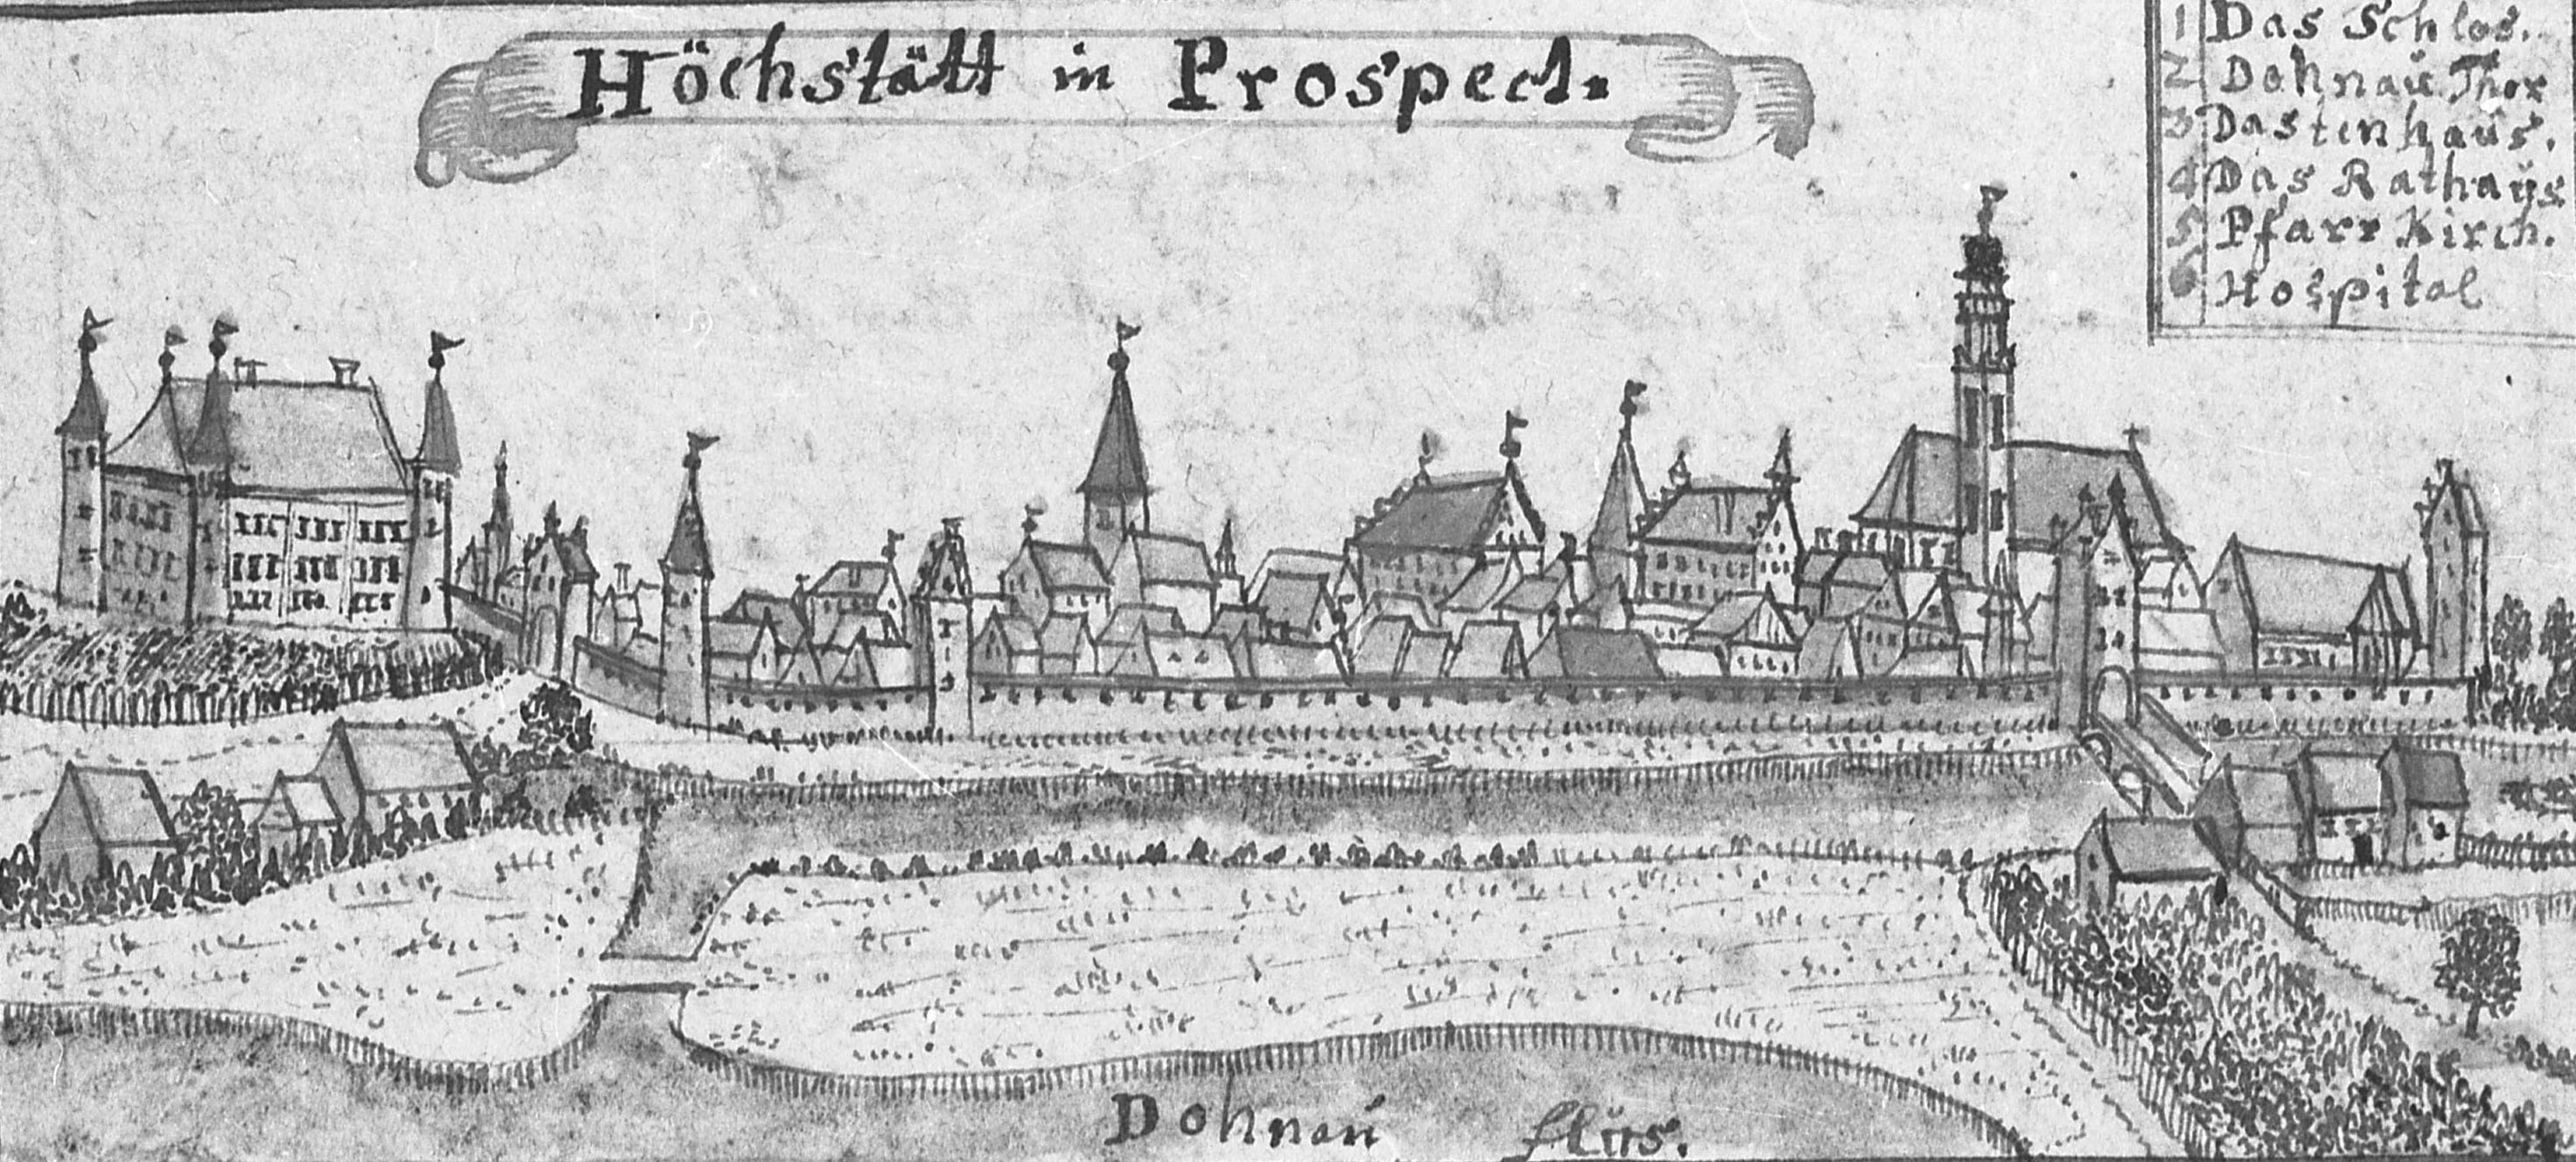 Höchstätt in Prospect.
1 Das Schlos.
2 Dohnau Thor
3 Dastenhaus.
4 Das Rathaus
5 Pfarr Kirch.
6 Hospital
Dohnau flus.